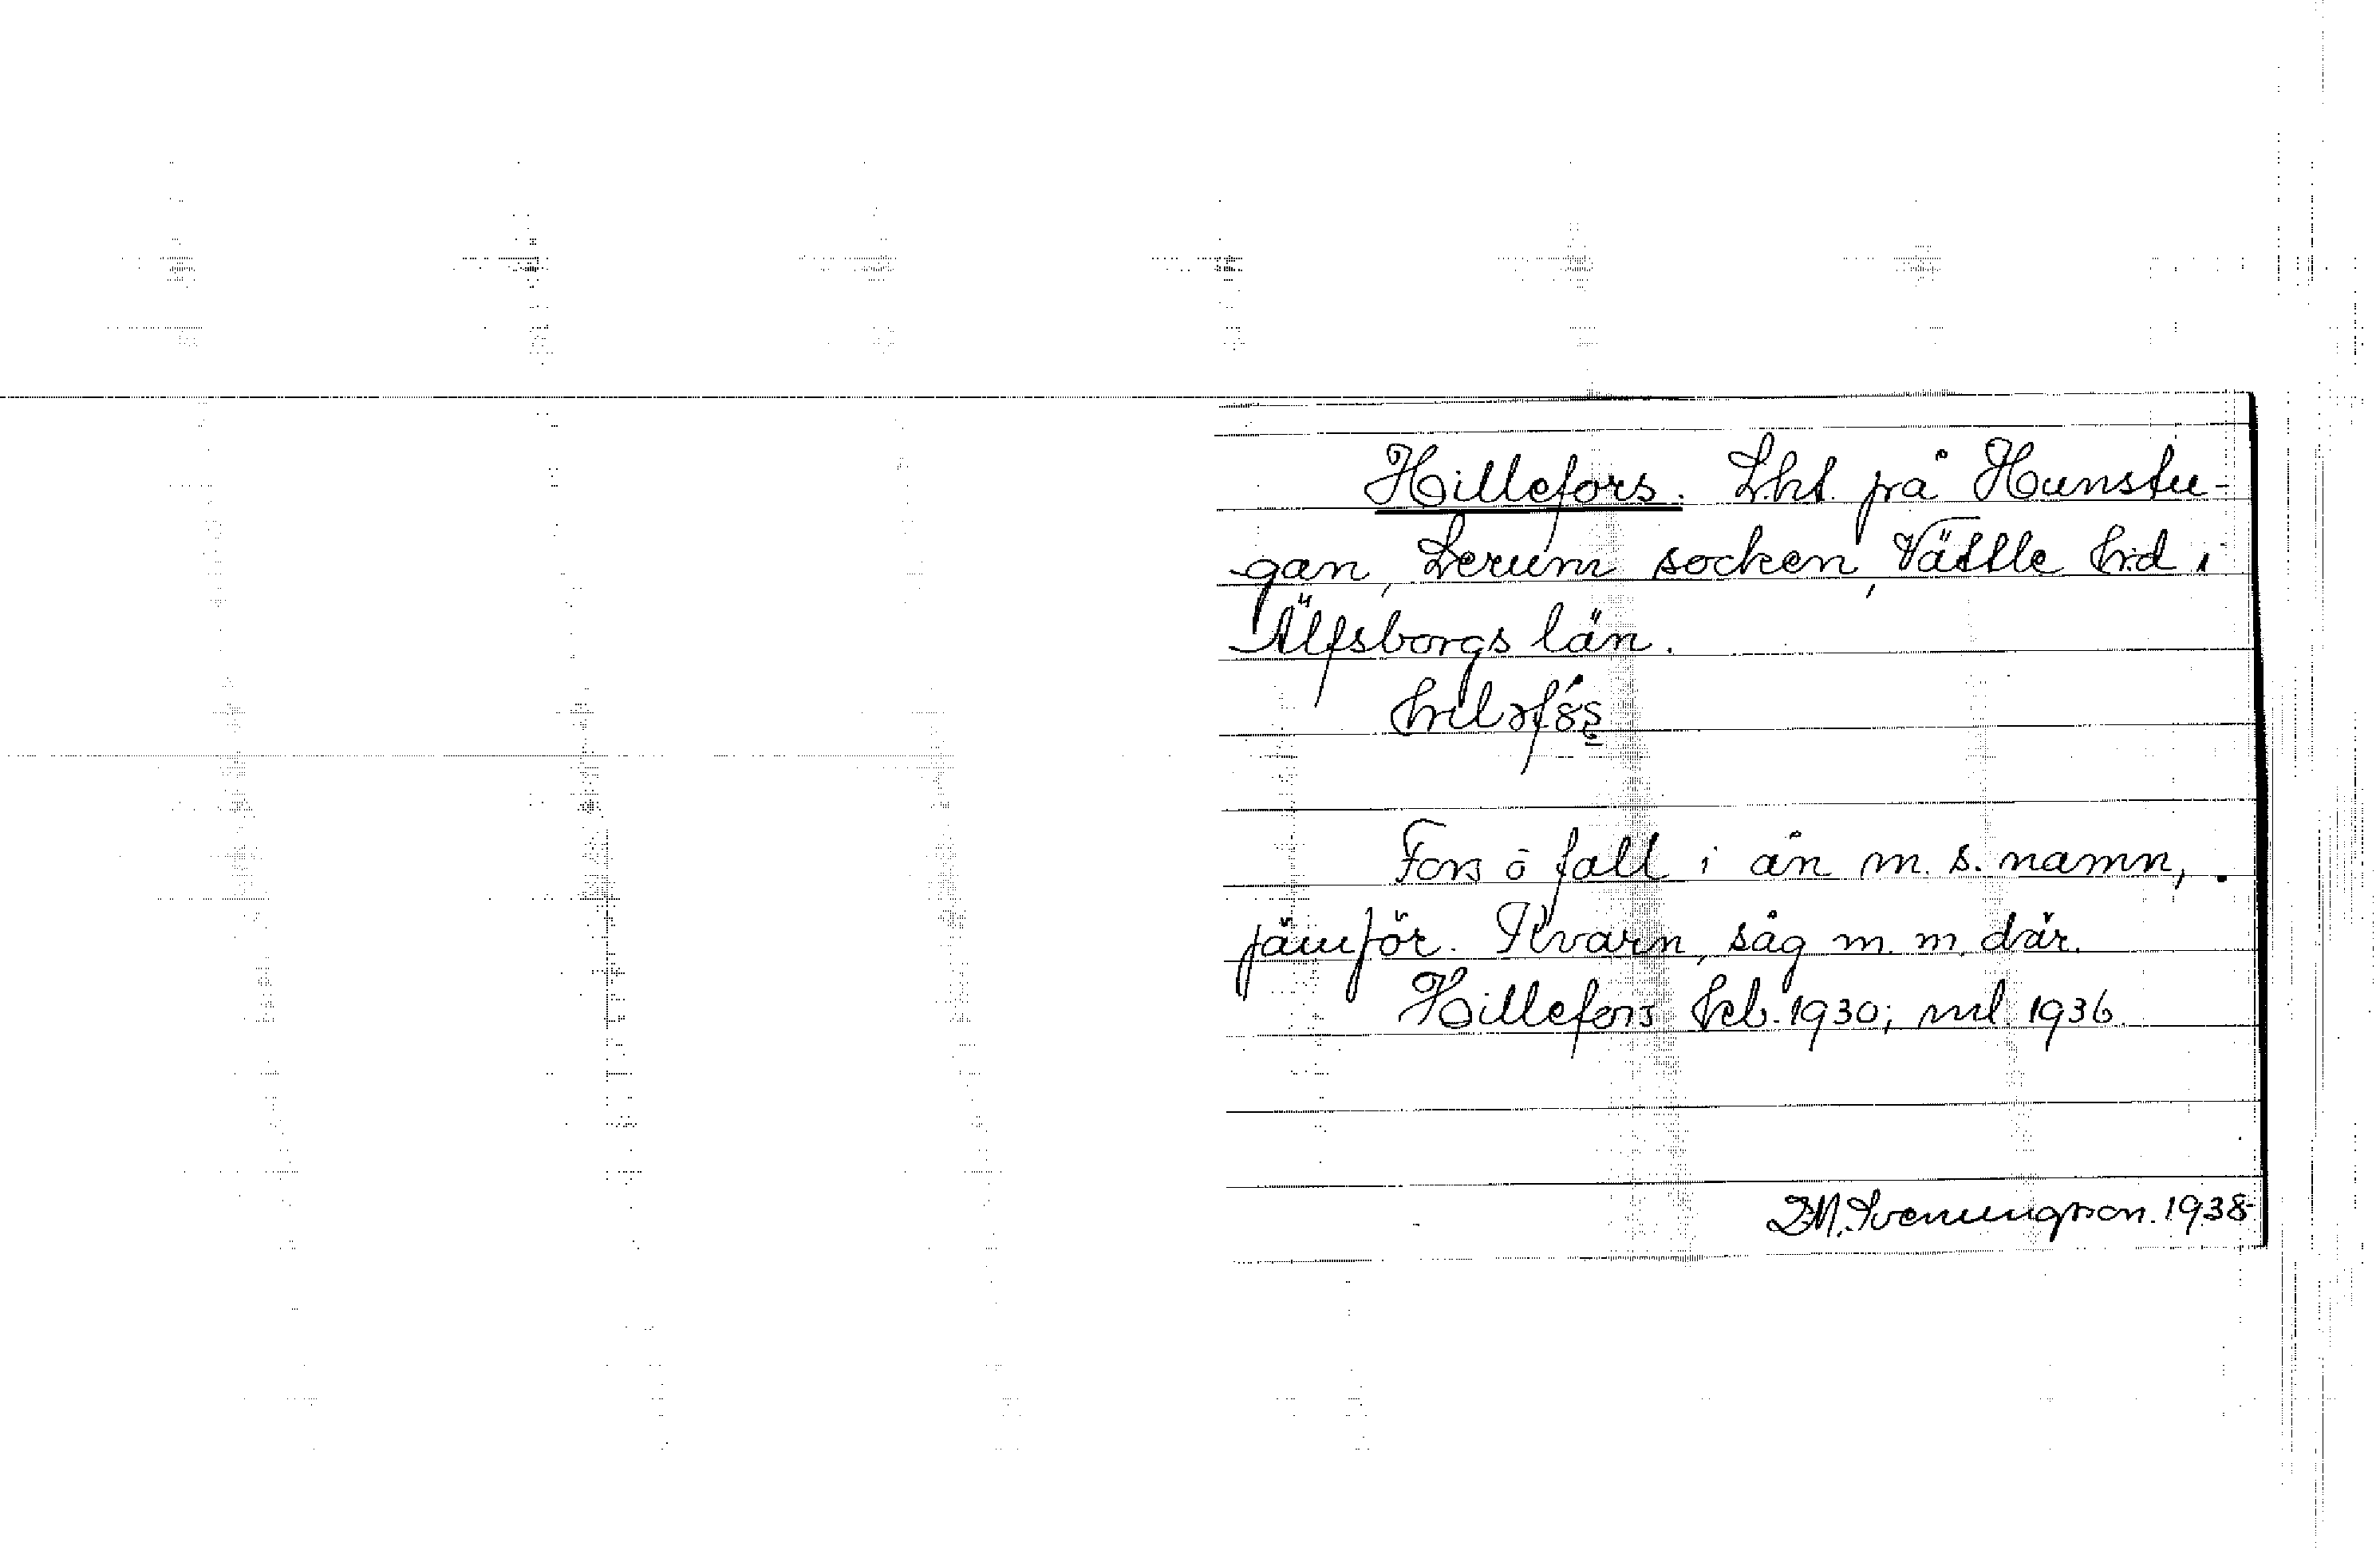 Hillefors. Lht. på Hunstu-
gan, Lerum socken, Vättle hd i
Älfsborgs län.
Fors o fall i ån m. s. namn,
jämför. Kvarn, såg m. m. där.
Hillefors hcb. 1930; ml. 1936.
D.M. Svenungsson. 1938